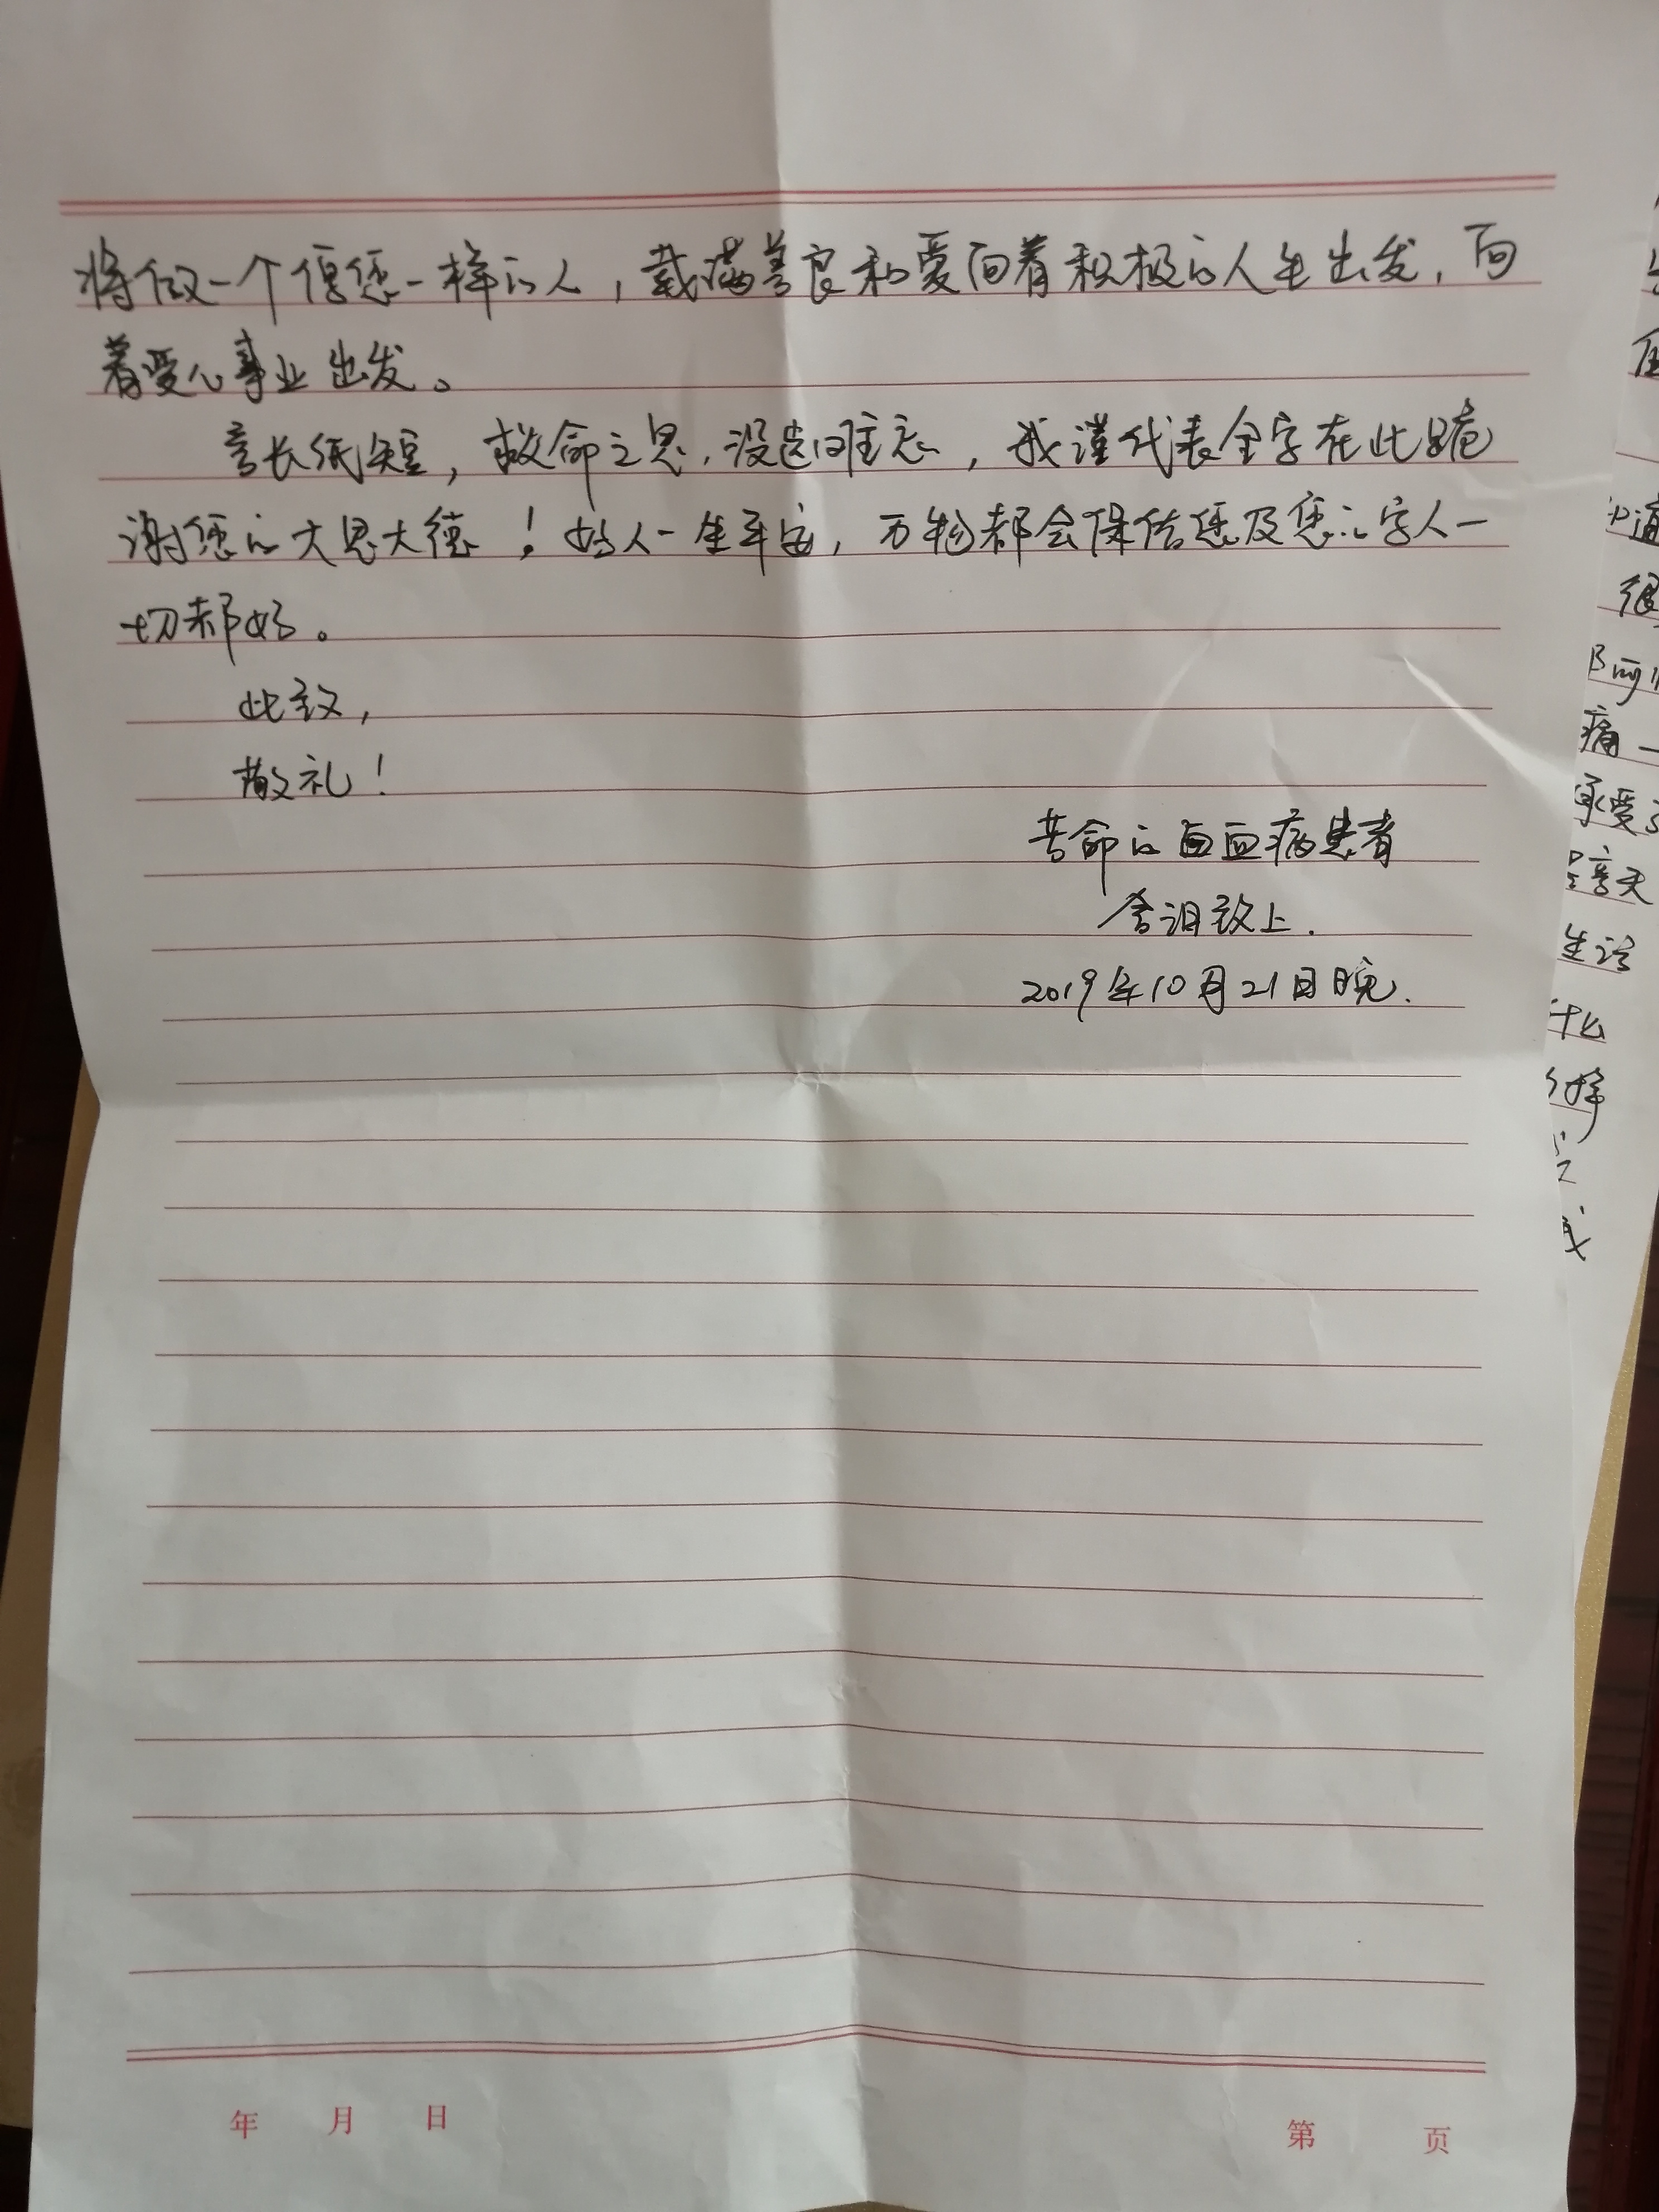 将做一个像您一样的人，载满善良和爱向着积极的人生出发，向
着爱心事业出发。
意长纸短，救命之恩，没齿难忘，我谨代表全家在此跪
谢您的大恩大德！好人一生平安，万物都会保佑您及您的家人一
切都好。
此致，
敬礼！
苦命的白血病患者
含泪致上.
2019年10月21日晚.
年 月 日
第 页
很
痛一
承受了
生活
什么
择